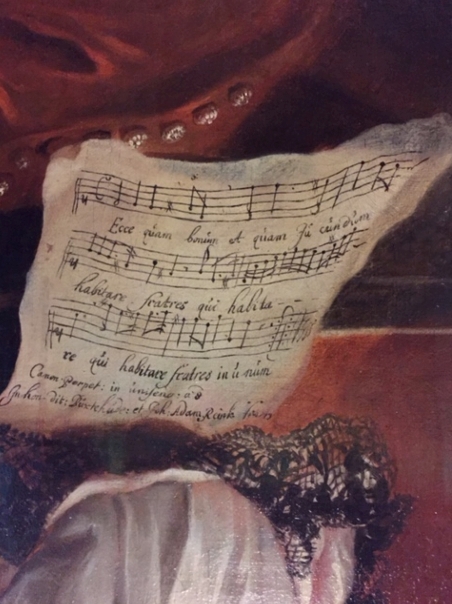 Ecce quam bonum et quam ju cundum
habitare fratres qui habita - -
re qui habitare fratres in u num
Canon Perpet: in unisono: a 8
In hon: dit: Buxtehude: et Joh: Adam Reink